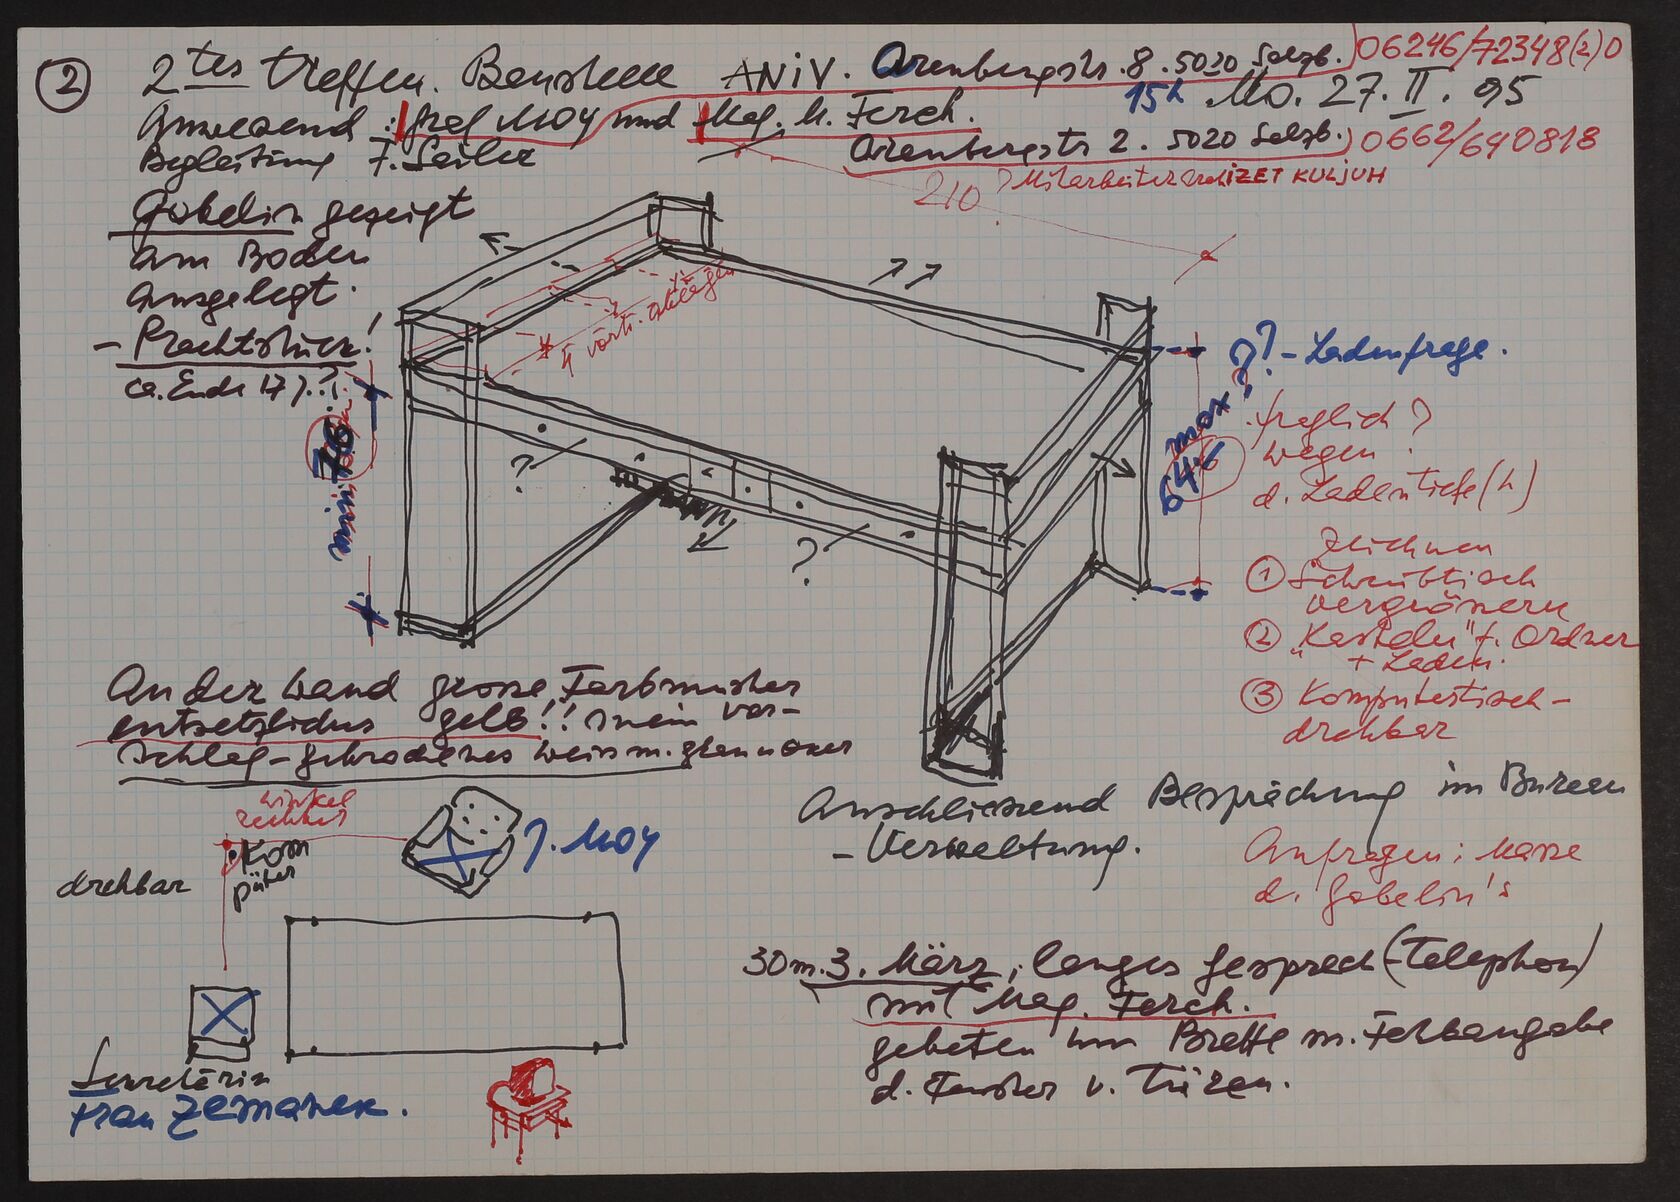 2
2tes Treffen. Baustelle ANIV. Arenbergstr. 8. 5020 Salzb. 06246/72348(2)0
15h Mo. 27. II. 95
Anwesend: Graf MOY und Mag. M. Ferch.
Arenbergstr 2. 5020 Salzb. 0662/640818
Begleitung F. Seiler
? Mitarbeiter IZET KULJUH
210
Gobelin gezeigt
am Boden
Ausgelegt.
- Prachtstück!
ca. Ende 17 J.??
4 vorh.
min 76
max 64.6
??? - Ladenfrage.
fraglich?
wegen
d. Ladentiefe (h)
?
?
Zeichnen
1 Schreibtisch
vergrössern
2 "Kasteln" f. Ordner
+ Laden.
3 Komputertisch -
drehbar
An der Wand grosse Farbmuster
entsetzliches gelb!! mein Vor-
schlag - gebrochenes weiss m.
Anschliessend Besprechung im Bureau
- Verwaltung.
Anfragen: Masse
d. Gobelin's
winkel
drehbar
Kom
puter
J. MOY
30 m. 3. März, langes Gesprech (Telephon)
mit Mag. Ferch.
gebeten um Blätte m. Farbangabe
d. Fenster u. Türen.
Sekretärin
Frau ZEMANEK.